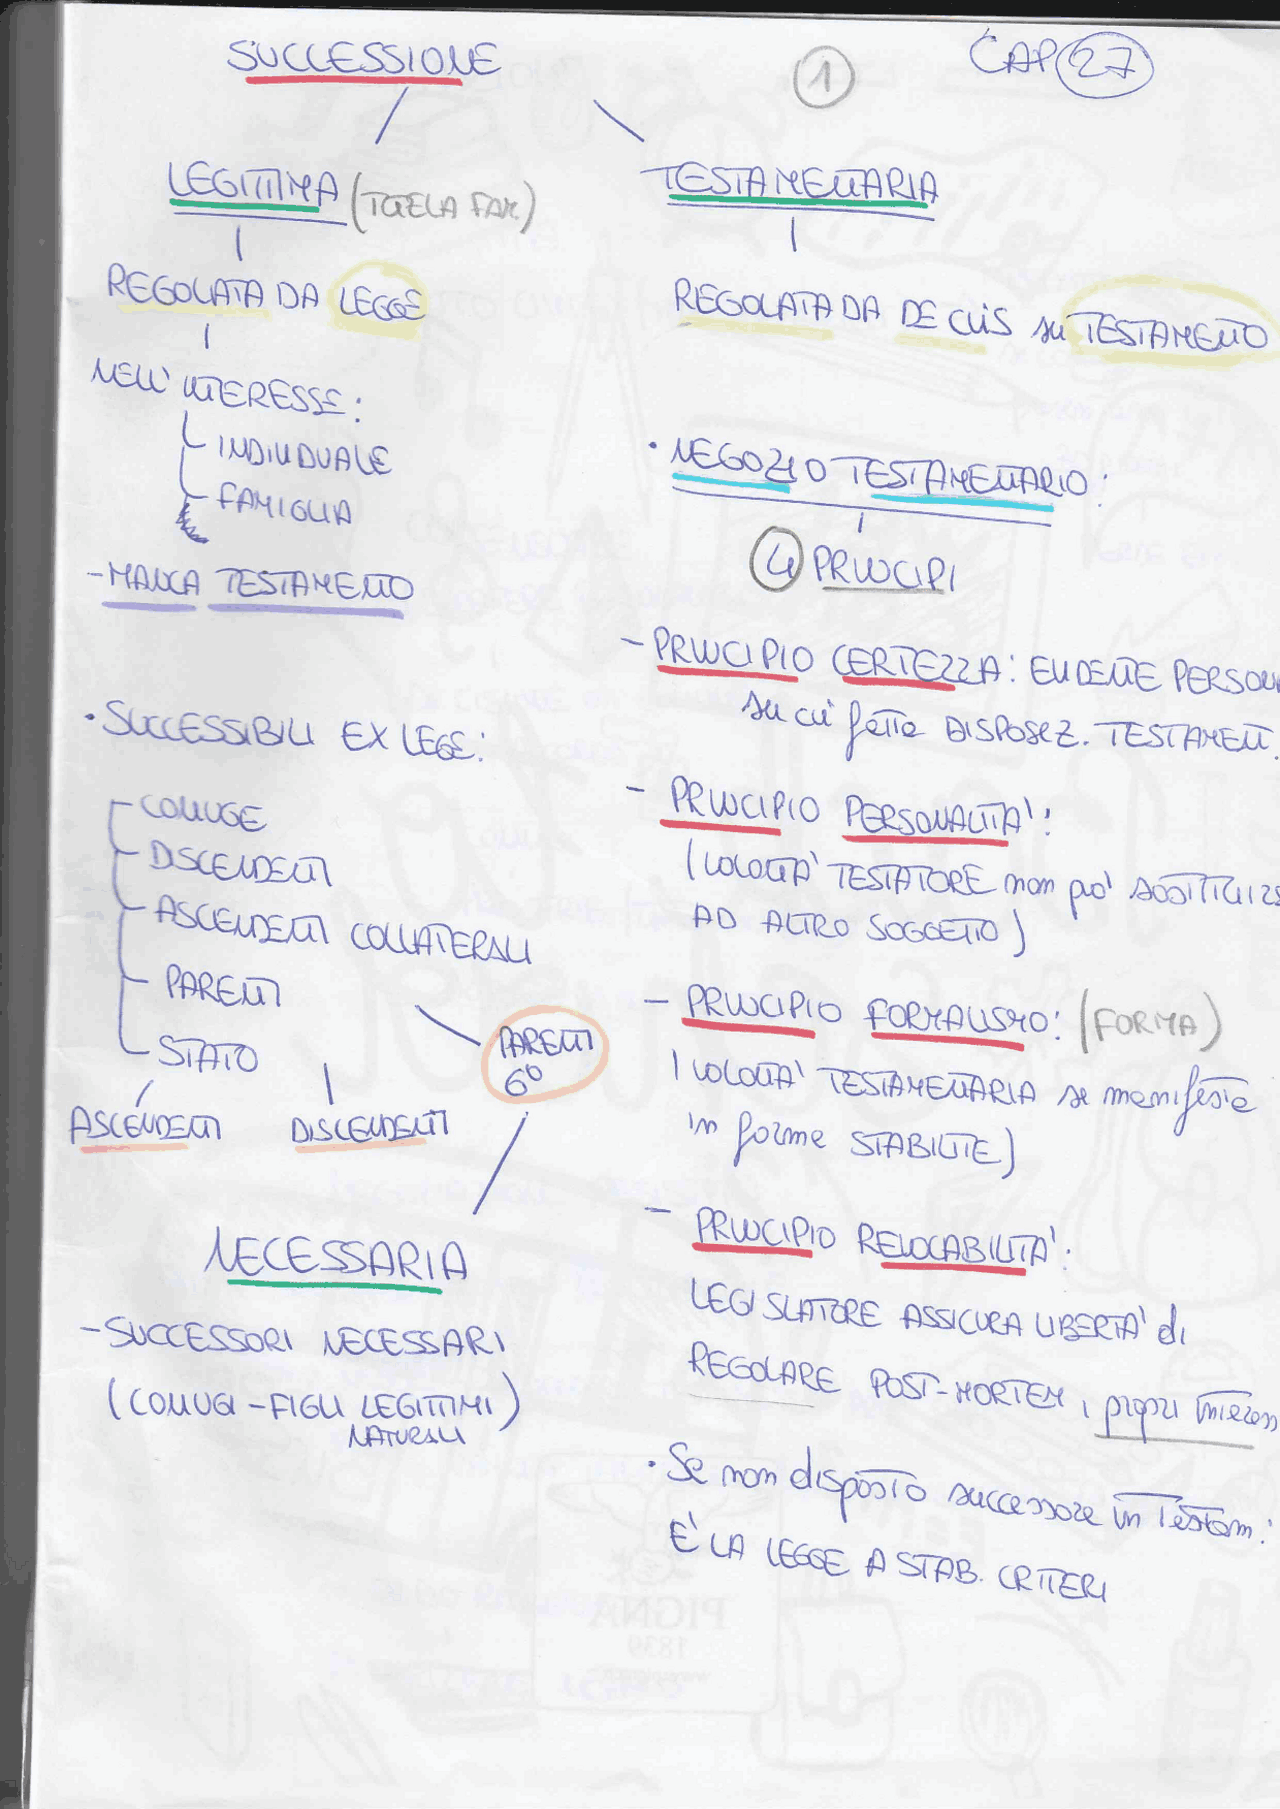 SUCCESSIONE
1
CAP 27
LEGITTIMA (TUTELA FAM)
REGOLATA DA LEGGE
NELL'INTERESSE:
INDIVIDUALE
FAMIGLIA
- MANCA TESTAMENTO
• SUCCESSIBILI EX LEGE:
CONIUGE
DISCENDENTI
ASCENDENTI COLLATERALI
PARENTI
STATO
PARENTI
6°
ASCENDENTI DISCENDENTI
NECESSARIA
- SUCCESSORI NECESSARI
(CONIUGI - FIGLI LEGITTIMI)
NATURALI
TESTAMENTARIA
REGOLATA DA DE CUIS su TESTAMENTO
• NEGOZIO TESTAMENTARIO:
4 PRINCIPI
- PRINCIPIO CERTEZZA: EVIDENTE PERSONA
su cui fatta DISPOSIZ. TESTAMENT.
- PRINCIPIO PERSONALITA':
(VOLONTA' TESTATORE non può SOSTITUIRS
AD ALTRO SOGGETTO)
- PRINCIPIO FORMALISMO: (FORMA)
(VOLONTA' TESTAMENTARIA si manifesta
in forme STABILITE)
- PRINCIPIO REVOCABILITA':
LEGISLATORE ASSICURA LIBERTA' di
REGOLARE POST-MORTEM, propri interess
• Se non disposto successore in Testam:
E' LA LEGGE A STAB. CRITERI
PIGNA
1839